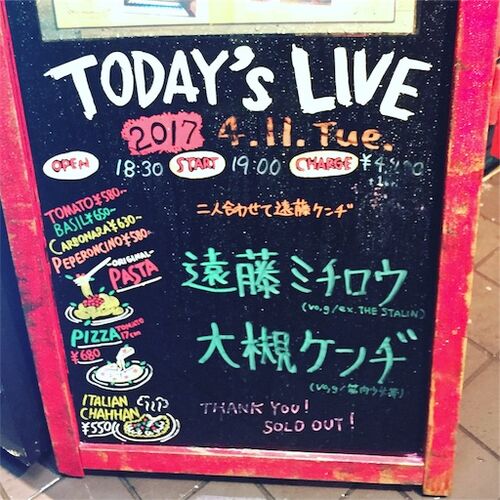 TODAY's LIVE
2017 4.11.Tue.
OPEN 18:30 START 19:00 CHARGE
二人合わせて遠藤ケンヂ
TOMATO ¥580-
BASIL ¥650-
CARBONARA ¥630-
PEPERONCINO ¥580-
ORIGINAL
PASTA
遠藤ミチロウ
(vo,g/ex.THE STALIN)
PIZZA TOMATO 17cm
¥680
大槻ケンヂ
(vo,g/筋肉少女帯)
ITALIAN
CHAHHAN
¥550
THANK YOU!
SOLD OUT!